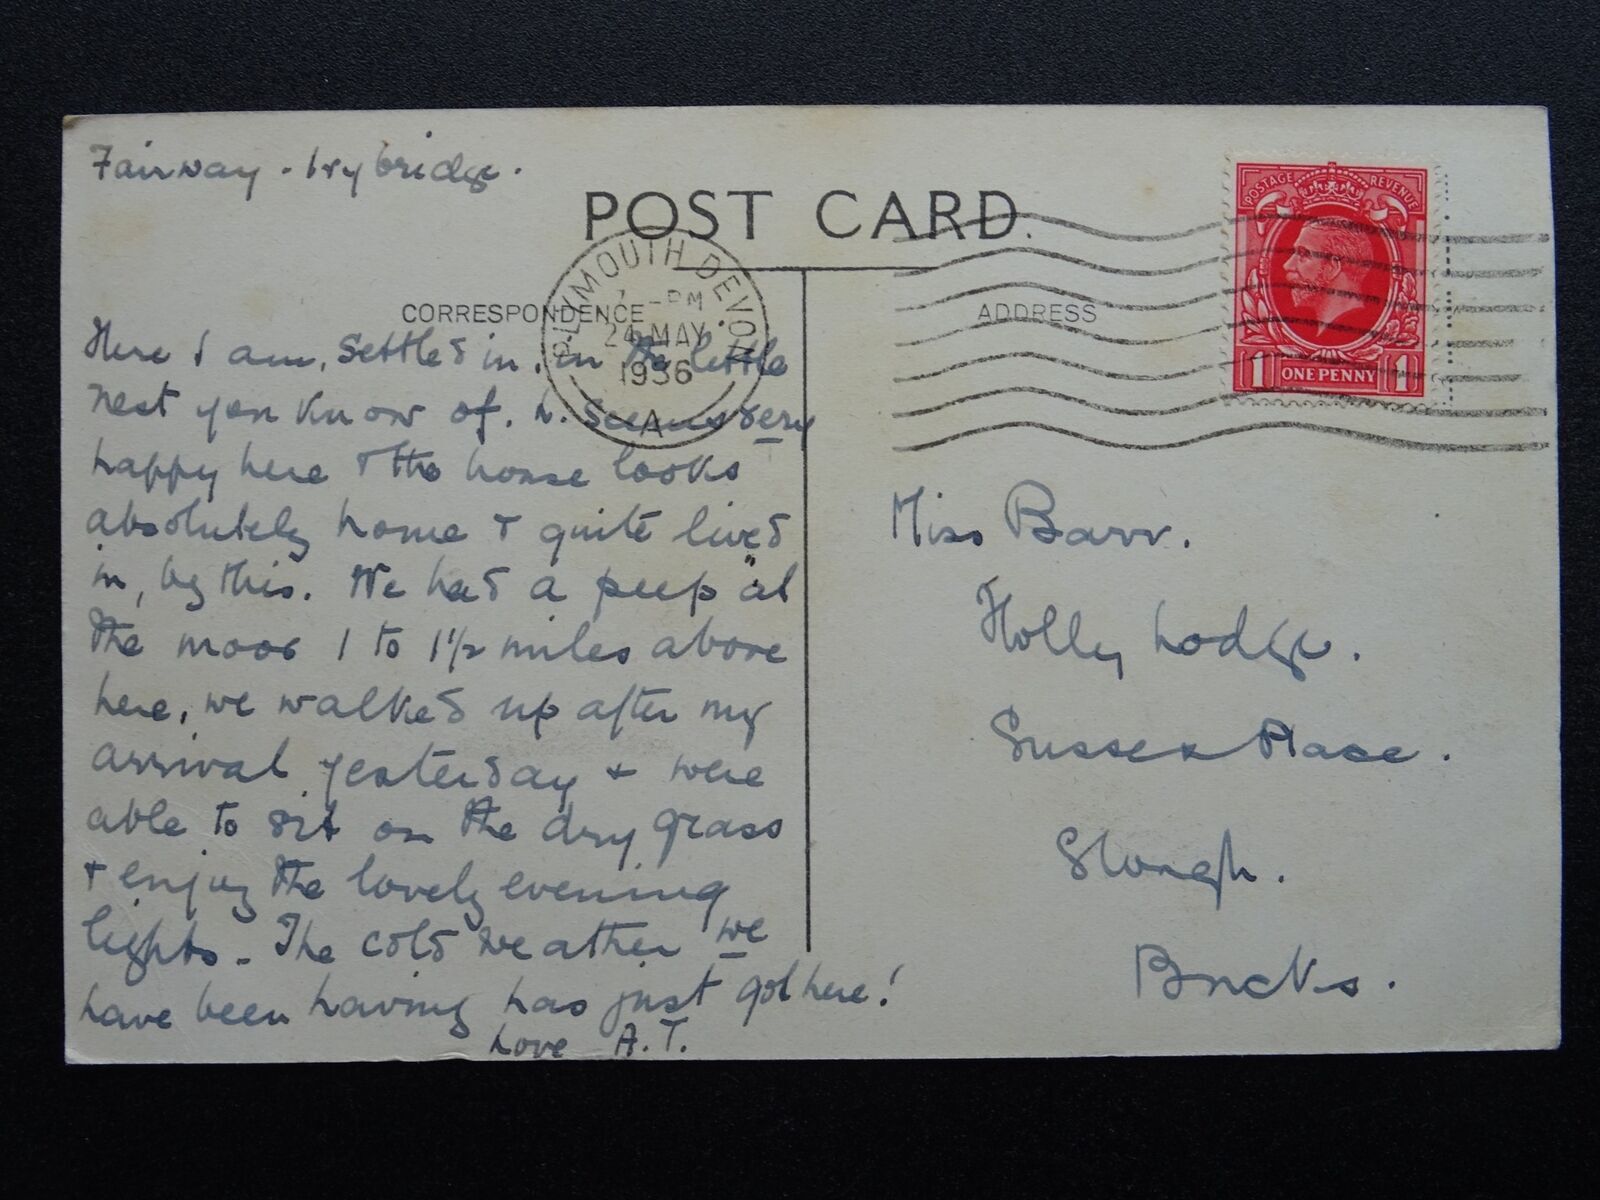 Fairway. Ivybridge.
POST CARD.
CORRESPONDENCE
ADDRESS
PLYMOUTH DEVON
7 - PM
24 MAY
1936
A
POSTAGE REVENUE
1 ONE PENNY 1
Here I am, settled in, in the little
nest you know of. L. seems very
happy here & the house looks
absolutely home & quite lived
in, by this. We had a "peep" at
the moor 1 to 1 1/2 miles above
here, we walked up after my
arrival yesterday & were
able to sit on the dry grass
& enjoy the lovely evening
lights. The cold weather we
have been having has just got here!
Love A.T.
Miss Barr.
Holly Lodge.
Sussex Place.
Slough.
Bucks.